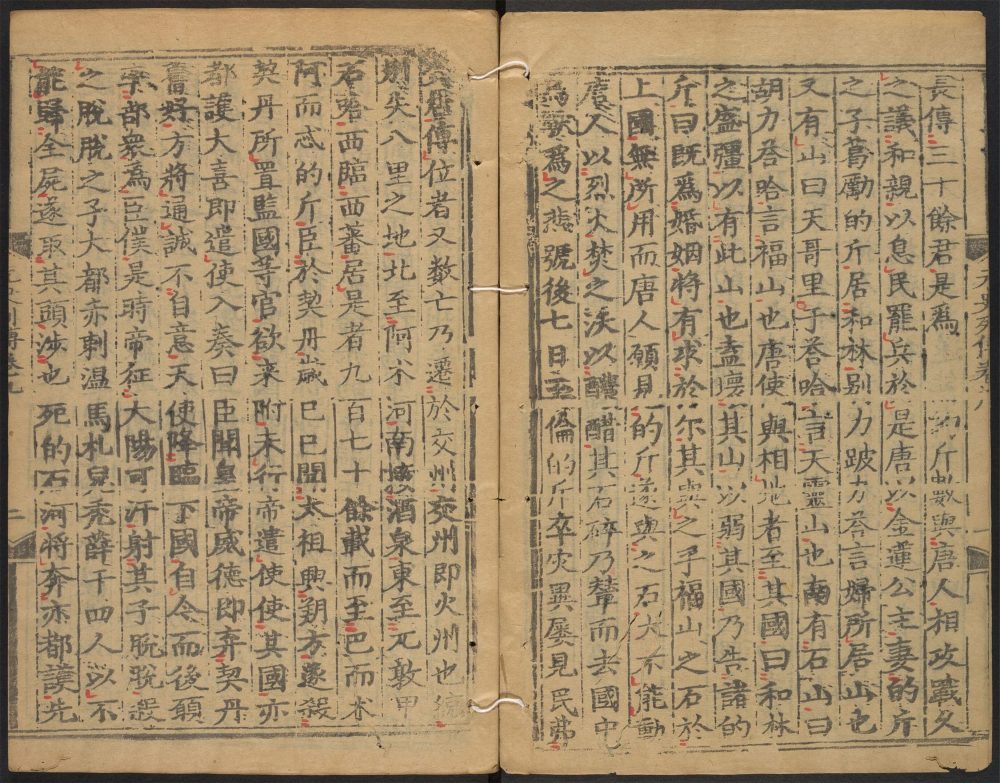 長傳三十餘君是為 的斤數與唐人相政戰久
之議和親以息民罷兵於是唐以金蓮公主妻的斤
之子葛勵的斤居和林別力跛力荅言婦所居山也
又有山曰天哥里于荅哈言天靈山也南有石山曰
胡力荅哈言福山也唐使與相地者至其國曰和林
之盛彊以有此山也盍壞其山以弱其國乃告諸的
斤曰既爲婚姻將有求於尔其與之乎福山之石於
上國無所用而唐人願見的斤遂與之石大不能動
唐人以烈火焚之沃以醲醋其石碎乃輦而去國中
鳥獸爲之悲號後七日玉倫的斤卒灾異屢見民弗
安居傳位者又数亡乃遷於交州交州即火州也統
別失八里之地北至阿朮河南接酒泉東至兀敦甲
石哈西臨西蕃居是者九百七十餘載而至巴而朮
阿而忒的斤臣於契丹歲己巳聞太祖興朔方遂殺
契丹所置監國等官欲来附未行帝遣使使其國亦
都護大喜即遣使入奏曰臣聞皇帝威德即弃契丹
舊好方將通誠不自意天使降臨下國自今而後願
率部衆為臣僕是時帝征大陽可汗射其子脫脫殺
之脫脫之子大都赤剌温馬札兒禿薛干四人以不
能歸全屍遂取其頭涉也兒的石河將奔亦都護先